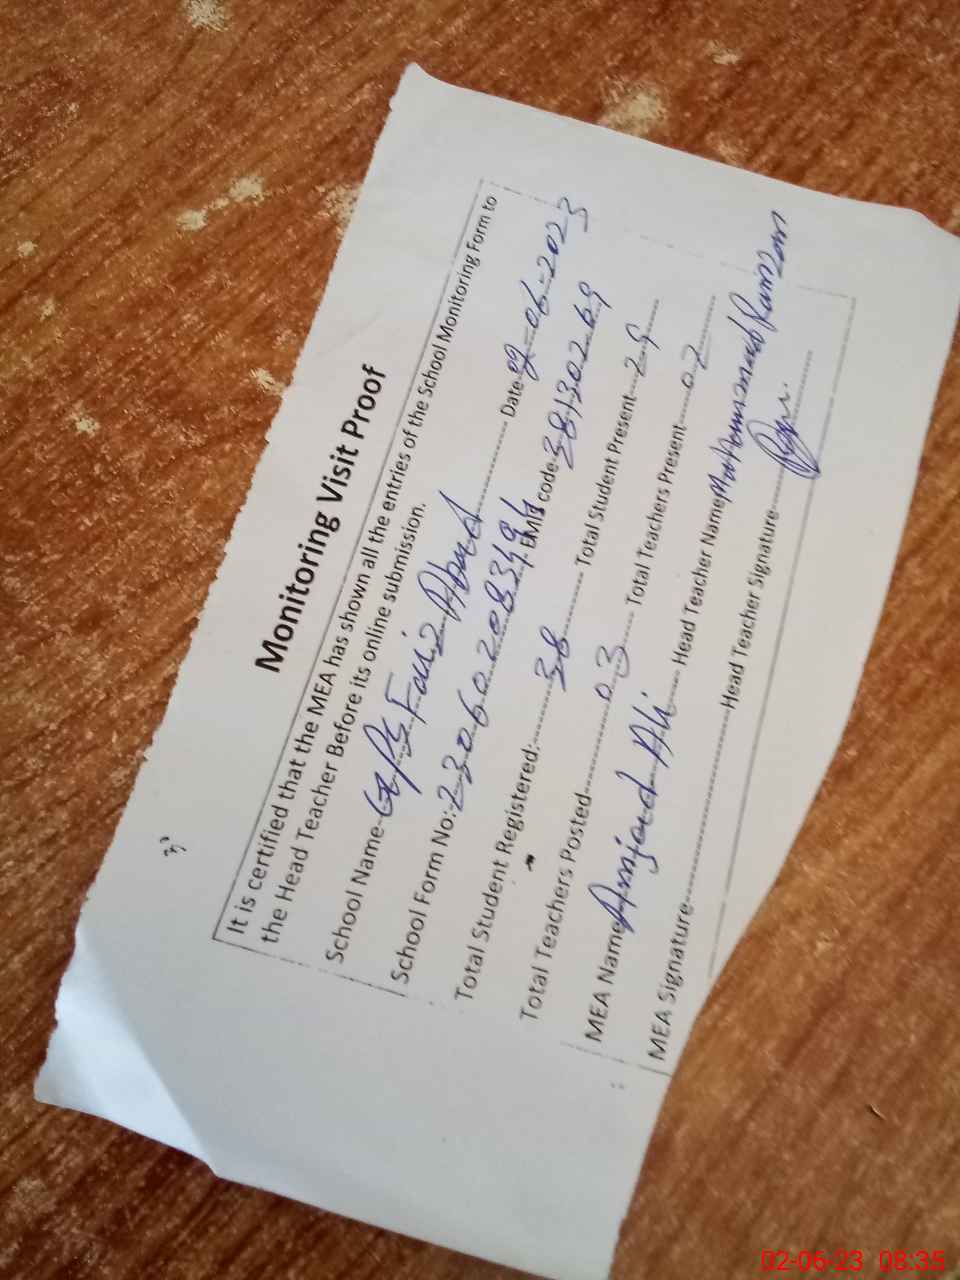 Monitoring Visit Proof
It is certified that the MEA has shown all the entries of the School Monitoring Form to
the Head Teacher Before its online submission.
School Name GPS Faiz Abad Date 02-06-2023
School Form No: 230602083494 EMIS code 38130269
Total Student Registered: 38 Total Student Present 29
Total Teachers Posted 03 Total Teachers Present 02
MEA Name Amjad Ali Head Teacher Name Muhammad Ramzan
MEA Signature Head Teacher Signature
02-06-23 08:35